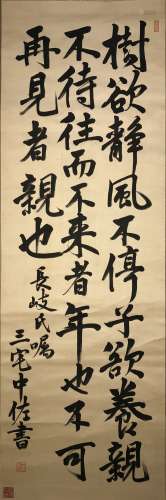 樹欲静風不停子欲養親
不待往而不来者年也不可
再見者親也
長岐氏嘱
三宅中佐書